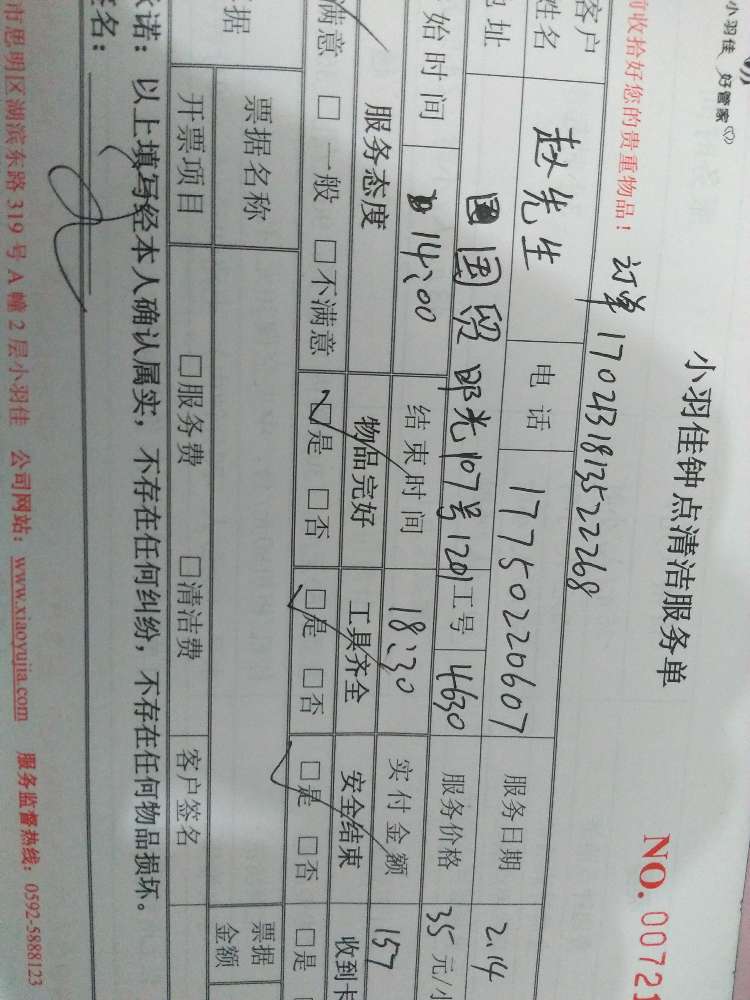 小羽佳 好管家
小羽佳钟点清洁服务单
NO.00721
前收拾好您的贵重物品！ 订单 1702131813522268
客户姓名 赵先生 电话 17750220607 服务日期 2.14
地址 国贸阳光107号1201 工号 4630 服务价格 35元/小
始时间 14:00 结束时间 18:30 实付金额 157
服务态度 物品完好 工具齐全 安全结束 收到卡
满意 □一般 □不满意 □是 □否 □是 □否 □是 □否 □是
据 票据名称 票据金额
开票项目 □服务费 □清洁费 客户签名
承诺：以上填写经本人确认属实，不存在任何纠纷，不存在任何物品损坏。
签名：
市思明区湖滨东路 319 号 A 幢 2 层小羽佳 公司网站：www.xiaoyujia.com 服务监督热线：0592-5888123